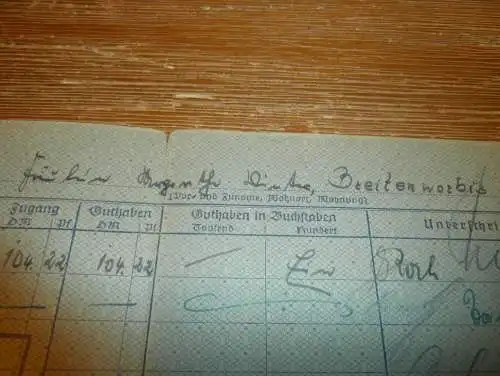 Fräulein Margarethe Dieter, Breitenworbis
(Vor- und Zuname, Wohnort, Wohnung)
Zugang Guthaben Guthaben in Buchstaben Unterschri
DM Pf DM Pf Tausend Hundert
104 22 104 22 — Ein Koch
— —